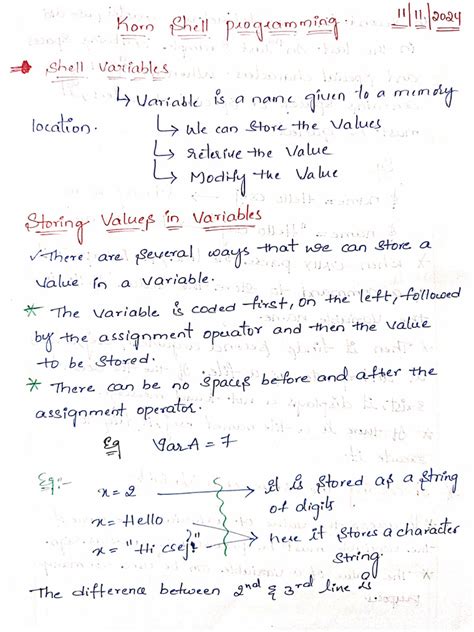 Korn Shell programming 11/11/2024
Shell Variables
↳ Variable is a name given to a memory
location. ↳ We can store the Values
↳ reterive the Value
↳ Modify the Value
Storing Values in Variables
✓ There are several ways that we can store a
Value in a variable.
* The variable is coded first, on the left, followed
by the assignment operator and then the value
to be stored.
* There can be no spaces before and after the
assignment operator.
Eg VarA = 7
Eg:- x = 2 → it is stored as a string
of digits
x = Hello
x = "Hi csej" → here it stores a character
string.
The difference between 2nd & 3rd line is